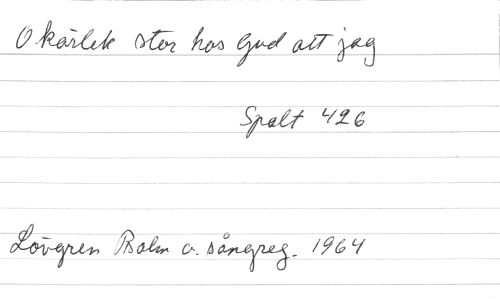 O kärlek stor hos Gud att jag
Spalt 426
Lövgren Psalm o. sångreg. 1964